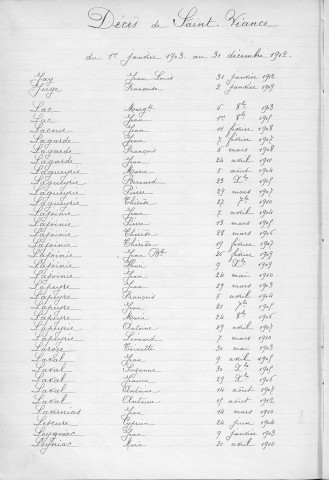 Décès de Saint Viance
du 1er janvier 1903 au 31 décembre 1912.
Jay Jean Louis 31 janvier 1912
Juge Françoise 2 janvier 1909
Lac Margte 6 8bre 1903
Lac Jean 1er 8bre 1905
Lacoue Jean 11 février 1908
Lagarde Jean 7 février 1907
Lagarde François 5 mars 1908
Lagarde Jean 24 avril 1911
Lagueyrie Marie 5 août 1904
Lagueyrie Bernard 23 Xbre 1905
Lagueyrie Pierre 29 mars 1907
Lagueyrie Thérèse 27 7bre 1910
Lafoinie Jean 7 avril 1904
Lafoinie Pierre 13 mars 1905
Lafoinie Thérèse 28 mars 1906
Lafoinie Thérèse 19 février 1907
Lafoinie Jean Bte 26 février 1909
Lafoinie Marie 9 Xbre 1909
Lafoinie Jean 24 mai 1910
Lapeyre Jean 29 mars 1903
Lapeyre François 5 avril 1904
Lapeyre Jean 21 7bre 1905
Lapeyre Marie 24 8bre 1906
Lapeyre Antoine 19 avril 1907
Lapeyrie Léonard 7 mars 1910
Laroze Toinette 30 mai 1903
Laval Jean 9 avril 1905
Laval Suzanne 30 Xbre 1905
Laval Jeanne 29 Xbre 1906
Laval Antoine 14 août 1907
Laval Antoine 15 août 1912
Lavernias Jean 14 mars 1910
Lescure Cyprien 24 juin 1904
Leygnac Jean 9 janvier 1903
Leyniac Marie 21 avril 1910